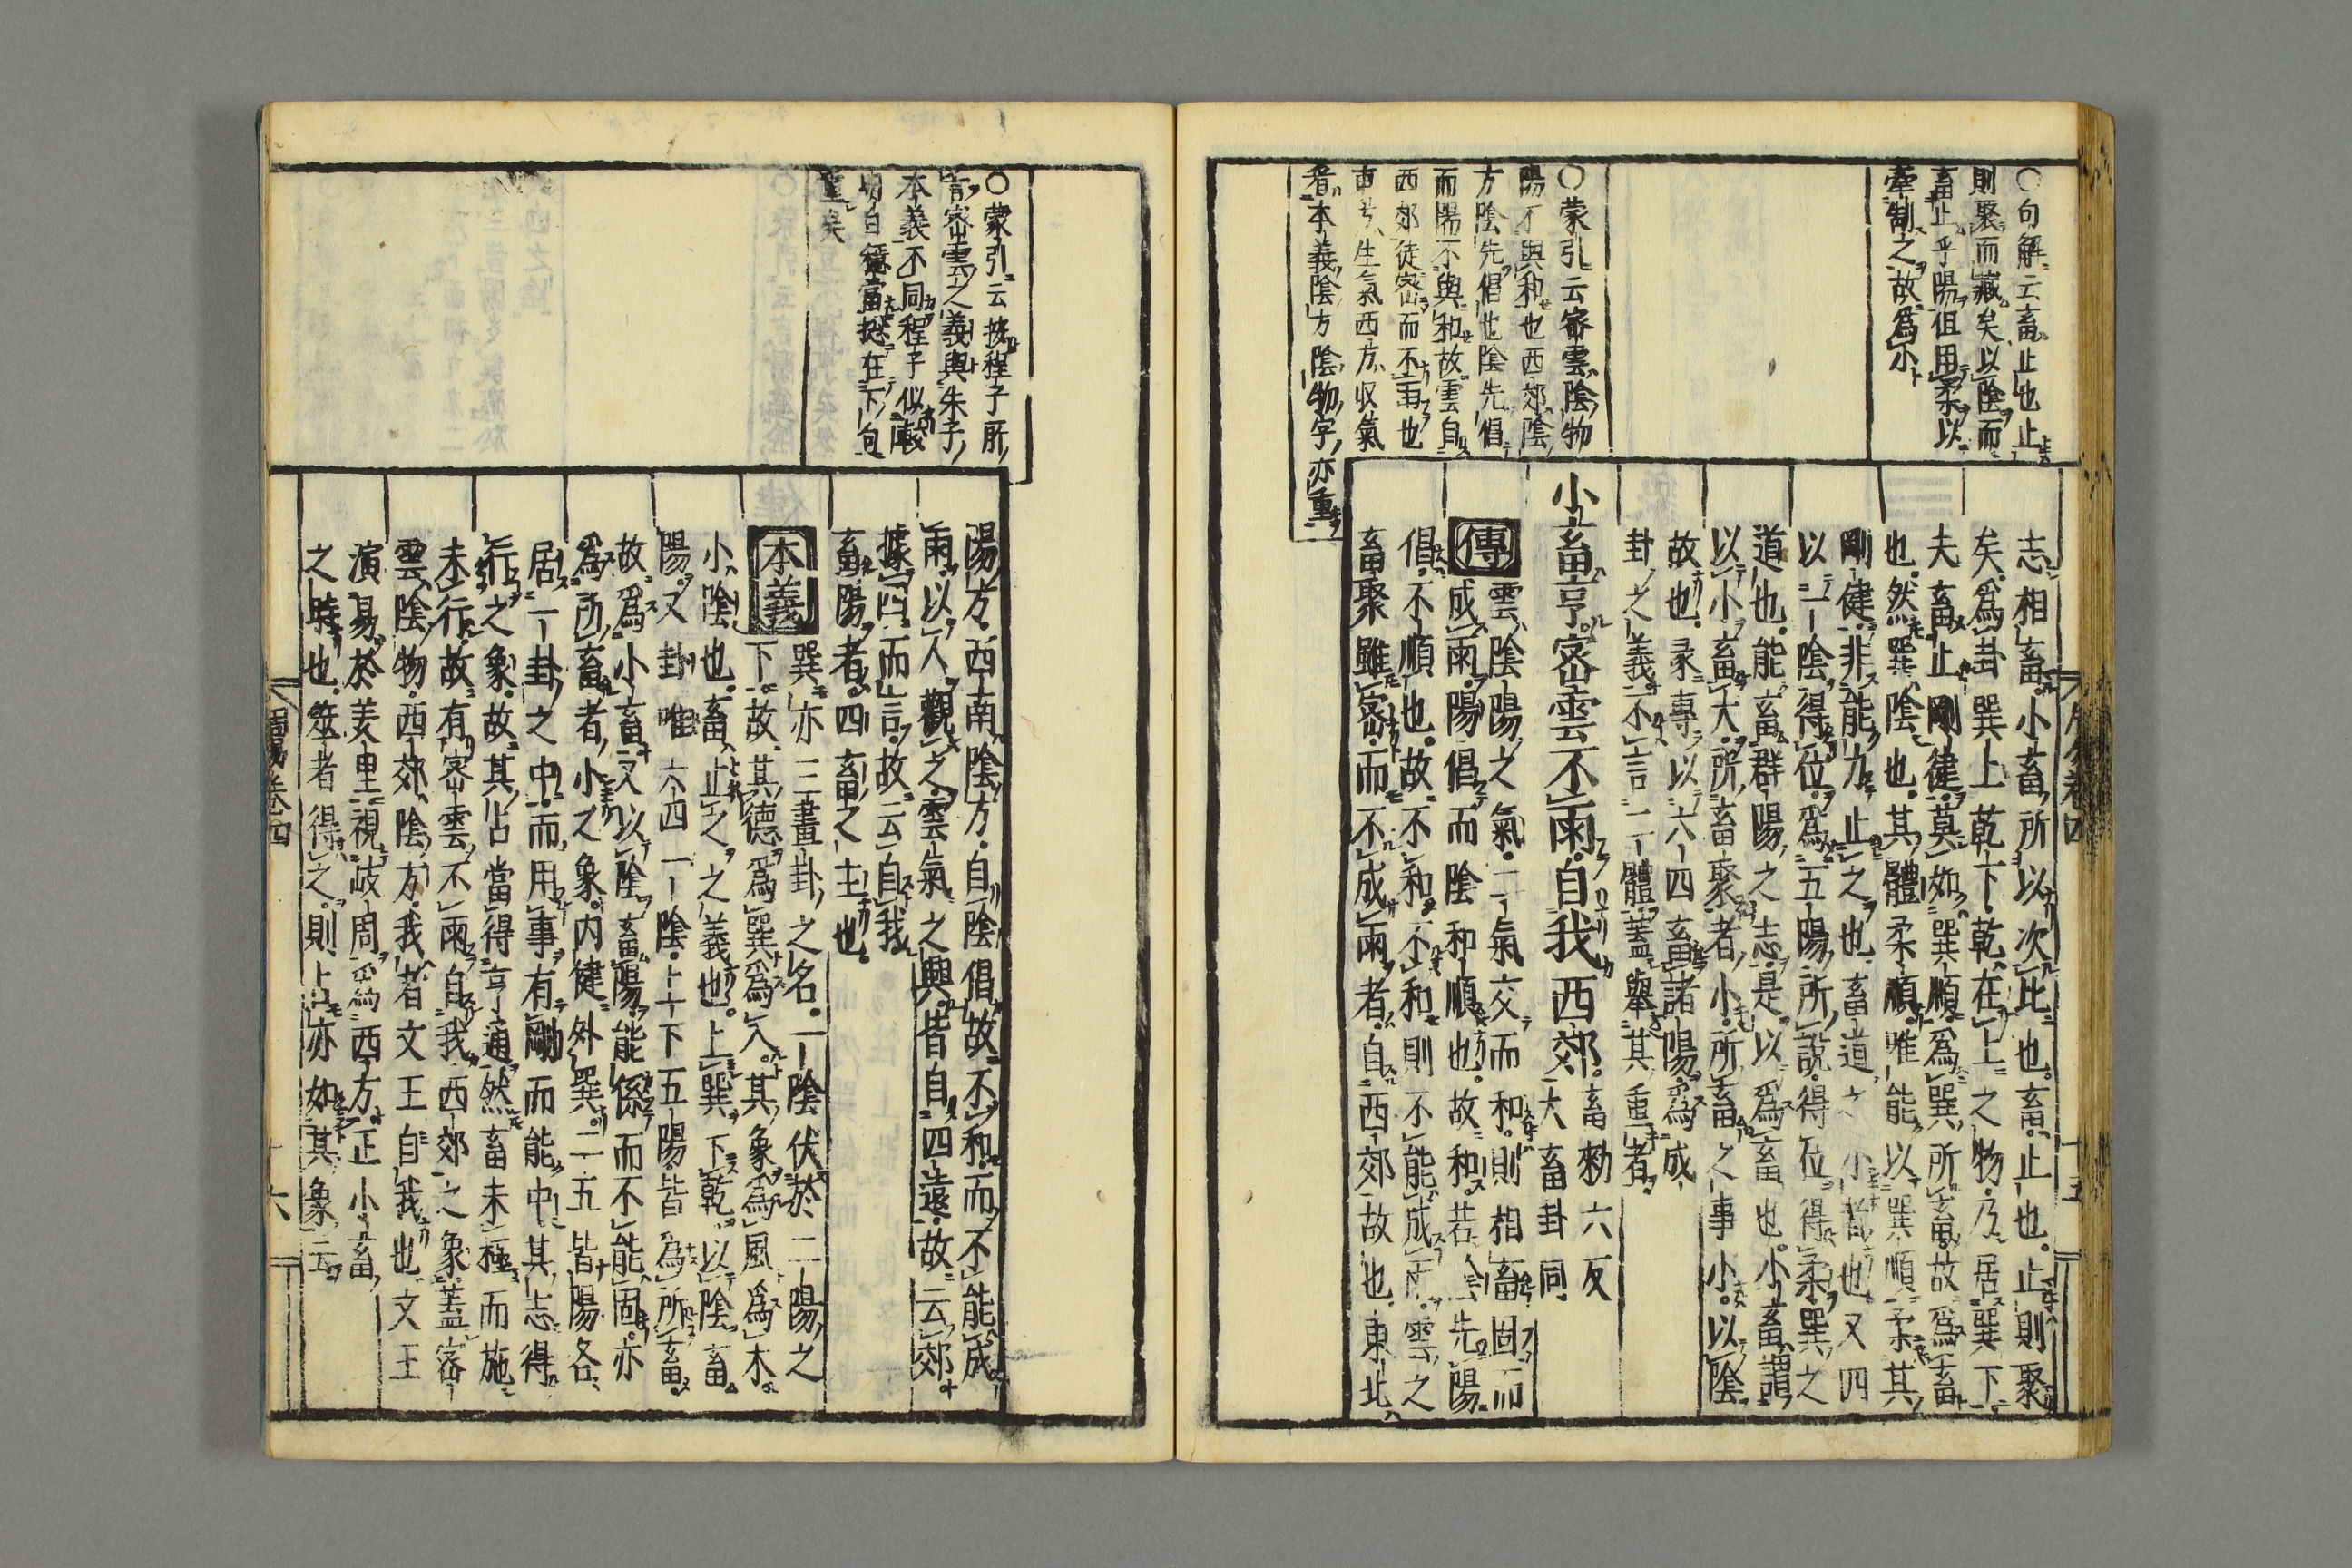 ○句解云畜止也止
則聚而藏矣以陰而
畜止乎陽但用柔以
牽制之故爲小
○蒙引云密雲陰物
陽不與和也西郊陰
方陰先倡也陰先倡
而陽不與和故雲自
西郊徒密而不雨也
東方生氣西方收氣
者本義陰方陰物字亦重
志相畜小畜所以次比也畜止也止則聚
矣爲卦巽上乾下乾在上之物乃居巽下
夫畜止剛健莫如巽順爲巽所畜故爲畜
也然巽陰也其體柔順唯能以巽順柔其
剛健非能力止之也畜道之小者也又四
以一陰得位爲五陽所說得位得柔巽之
道也能畜群陽之志是以爲畜也小畜謂
以小畜大所畜聚者小所畜之事小以陰
故也彖專以六四畜諸陽爲成
卦之義不言二體蓋舉其重者
小畜亨密雲不雨自我西郊 畜勑六反
大畜卦同
傳 雲陰陽之氣二氣交而和則相畜固而
成雨陽倡而陰和順也故和若陰先陽
倡不順也故不和不和則不能成雨雲之
畜聚雖密而不成雨者自西郊故也東北
周易卷四
十五
○蒙引云按程子所
言密雲之義與朱子
本義不同程子似較
明白猶當揔在下句
重矣
陽方西南陰方自陰倡故不和而不能成
雨以人觀之雲氣之興皆自四遠故云郊
據四而言故云自我
畜陽者四畜之主也
本義 巽亦三畫卦之名一陰伏於二陽之
下故其德爲巽爲入其象爲風爲木
小陰也畜止之之義也上巽下乾以陰畜
陽又卦唯六四一陰上下五陽皆為所畜
故爲小畜又以陰畜陽能係而不能固亦
爲所畜者小之象内健外巽二五皆陽各
居一卦之中而用事有剛而能中其志得
行之象故其占當得亨通然畜未極而施
未行故有密雲不雨自我西郊之象蓋密
雲陰物西郊陰方我者文王自我也文王
演易於羑里視岐周爲西方正小畜
之時也筮者得之則占亦如其象云
周易卷四
十六